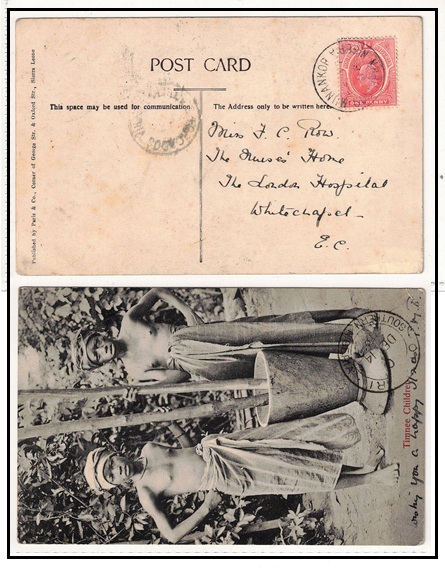 POST CARD
This space may be used for communication.
The Address only to be written here.
Published by Paris & Co., Corner of George Str. & Oxford Str., Sierra Leone
Miss F. C. Row.
The Nurses' Home
The London Hospital
Whitechapel
E.C.
Timnee Children
DE
14
SOUTHERN
wish you a happy